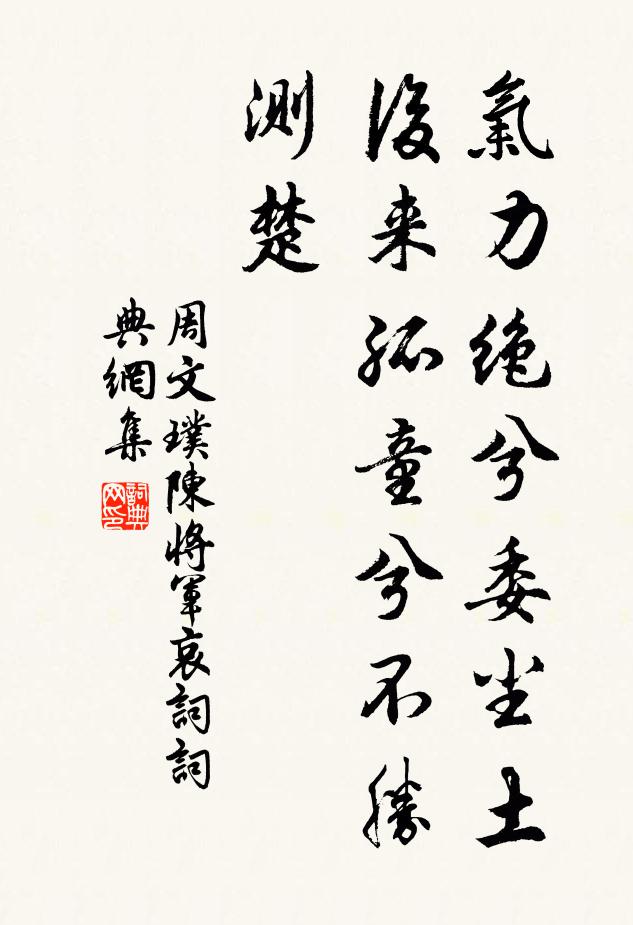 氣力絶兮委尘土
後来孤童兮不勝
測楚
周文璞陳將軍哀詞詞
典網集
詞典网印